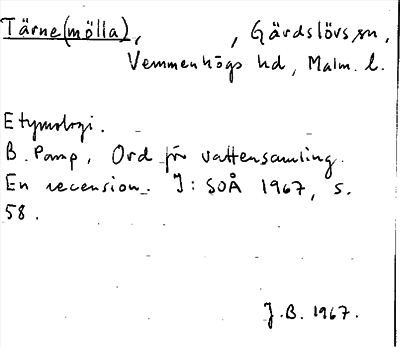 Tärne(mölla), , Gärdslövs sn,
Vemmenhögs hd, Malm. l.
Etymologi.
B. Pamp, Ord för vattensamling.
En recension. I: SOÅ 1967, s.
58.
J.B. 1967.